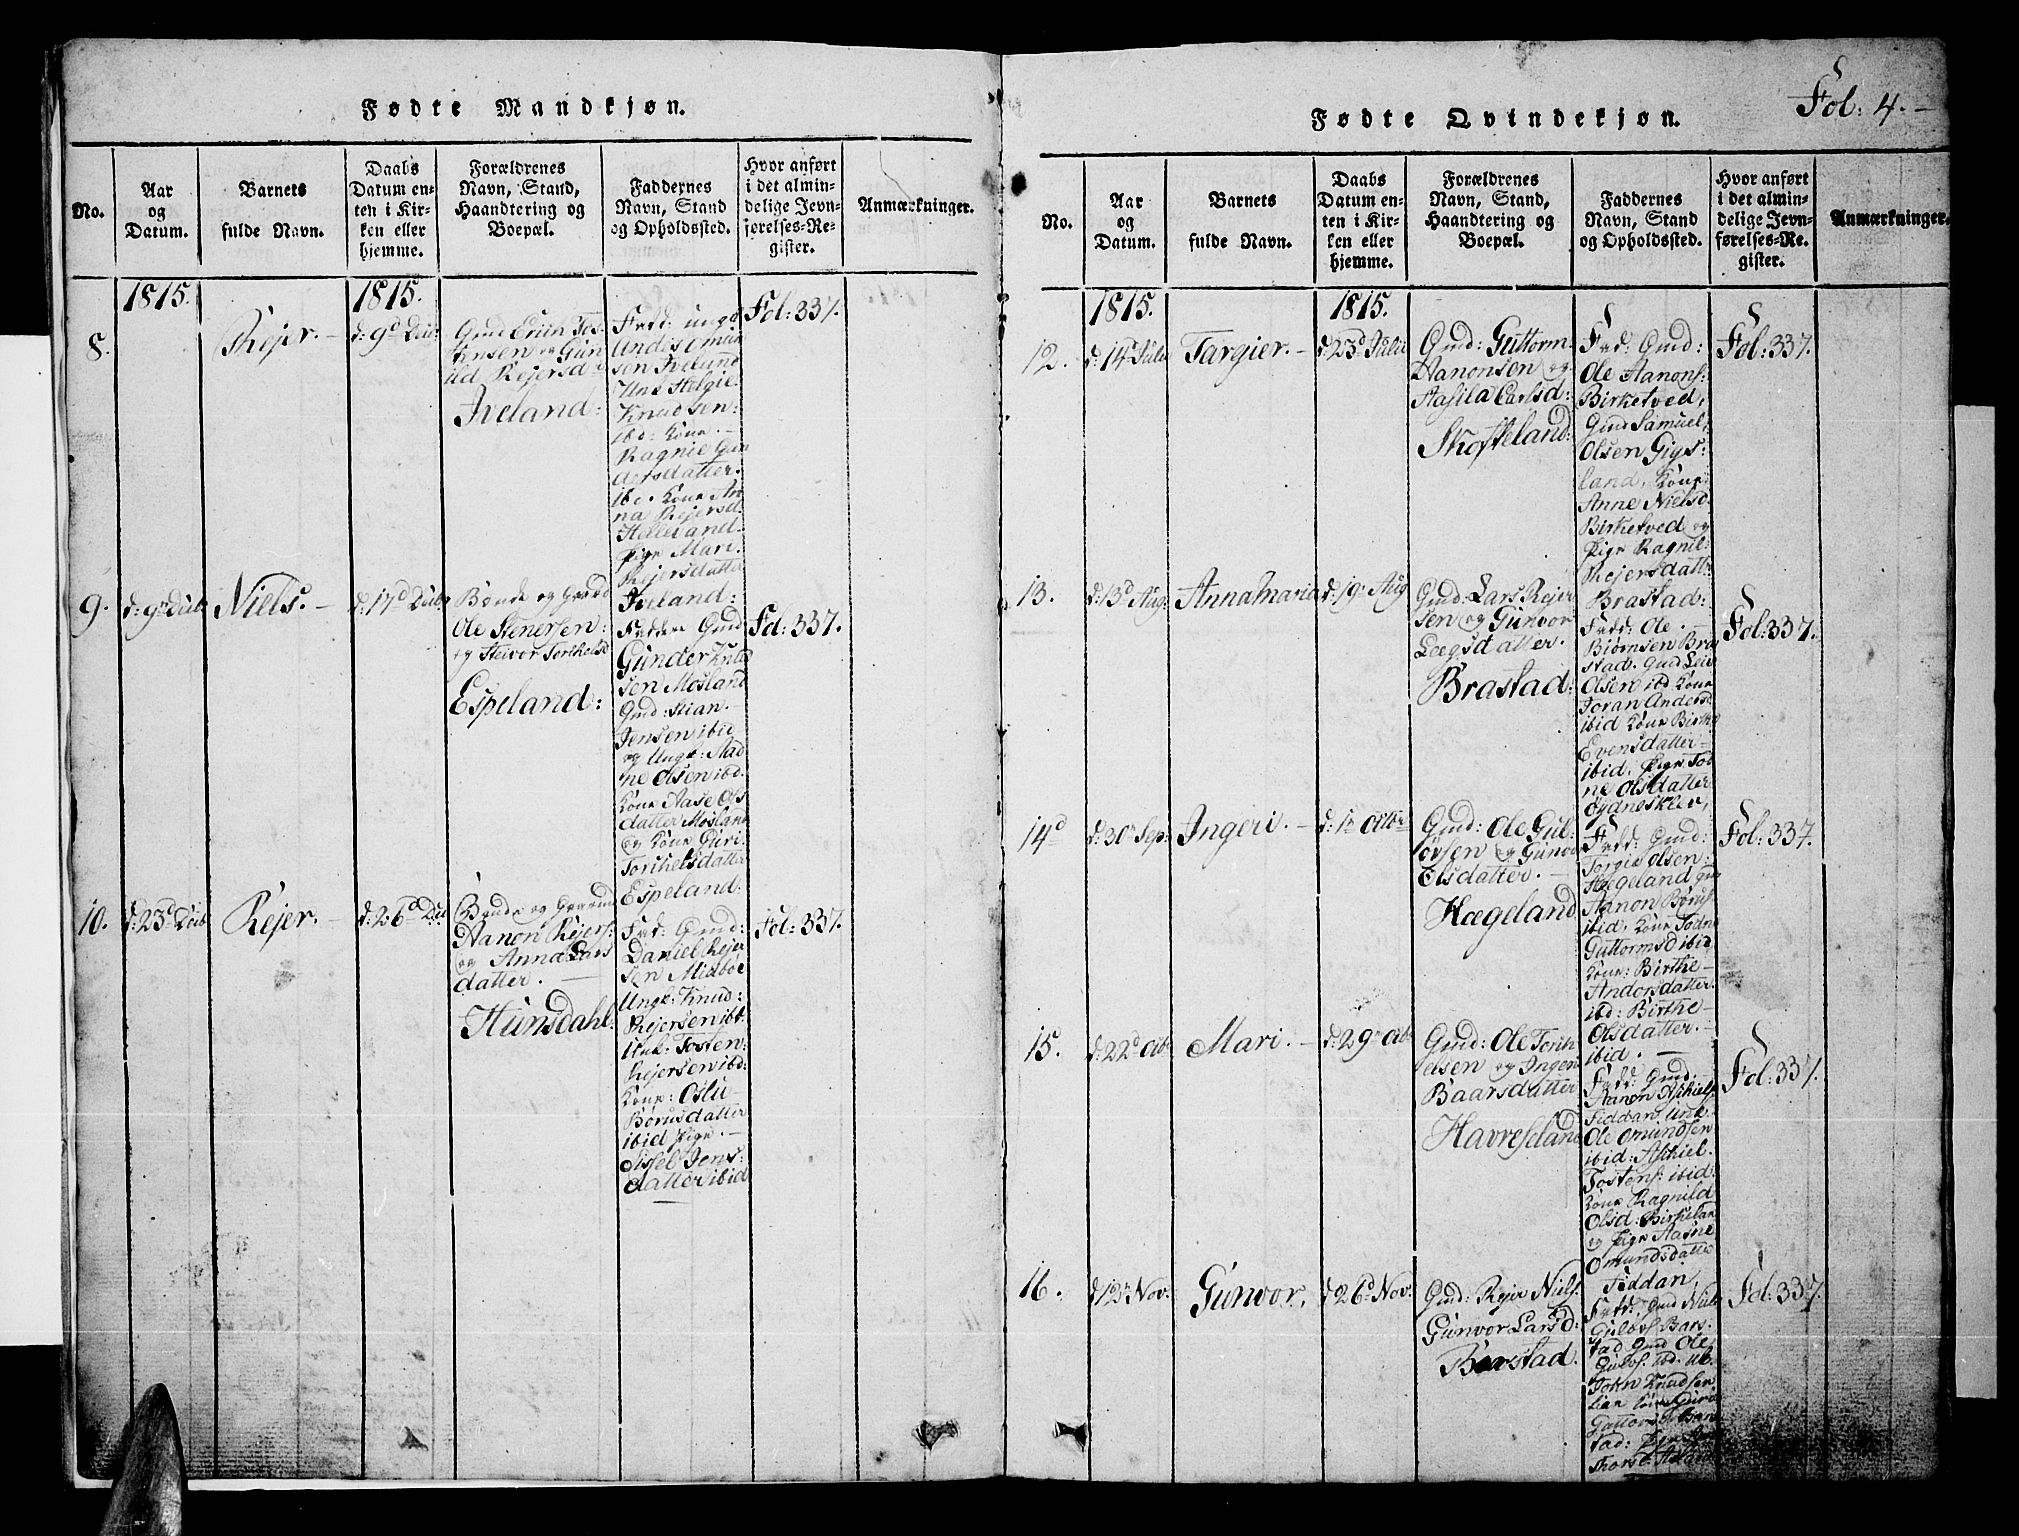 Fødte Mandkjøn.
No.
Aar
og
Datum.
Barnets
fulde Navn.
Daabs
Datum en-
ten i Kir-
ken eller
hjemme.
Forældrenes
Navn, Stand,
Haandtering og
Boepæl.
Faddernes
Navn, Stand
og Opholdssted.
Hvor anført
i det almin-
delige Jevn-
førelses-Re-
gister.
Anmærkninger.
1815.
1815.
8.
Rejer.
Gmd Erich Tos-
tensen og Gun
ild Rejersd
Iveland:
Fadd: ungk
Knudsen:
ibd: Kone.
Ragnie Gun
dersdatter.
ibd. Kone An
na Rejersd.
Pige Mari.
Rejersdatter
Iveland:
Fol: 337.
9.
Niels.
Bonde og Gaard
Ole Stenersen:
Espeland:
Gunder Knud
sen Mosland
Gmd: Stian.
Jensen ibid
og Ungk: Aad
ne Olsen ibd.
Kone Aase Ols
datter Mosland
og Kone Guri.
Torkelsdatter
Espeland:
Fol: 337.
10.
Rejer.
Aanon Rejers:
og Anna Lars
datter.
Hunsdahl:
Fad: Gmd:
Daniel Rejer
sen Midbøe
Ungk: Knud:
Rejersen ibt.
Tosten:
Rejersen ibd:
Kone: Oslu
Børusdatter
ibid Pige.
Sissel Jens:
datter ibid
Fol: 337.
Fødte Qvindekjøn.
Fol: 4.
No.
Aar
og
Datum.
Barnets
fulde Navn.
Daabs
Datum en-
ten i Kir-
ken eller
hjemme.
Forældrenes
Navn, Stand,
Haandtering og
Boepæl.
Faddernes
Navn, Stand
og Opholdssted.
Hvor anført
i det almin-
delige Jevn-
førelses-Re-
gister.
Anmærkninger.
1815.
1815.
12.
d: 14d Julii
Targier.
d 23d Julii
Gmd: Guttorm
Aanonsen og
Aasila Carlsd:
Skofteland:
Fad: Gmd:
Ole Aanons:
Birketved,
Gmd Samuel,
Olsen Gigs-
land, Kone
Anne Nielsd.
Birketved og
Pige Ragnil:
Rejersdatt:
Brastad:
Fol: 337.
13.
d: 13d Aug:
Annamaria
d: 19n Aug
Gmd: Lars Rejer
sen og Gunvor
Brastad:
Fadd: Ole.
Biørnsen Bra
stad. Gmd Leir
Olsen ibd Kone
Joran Anders
ibid Kone Birthe
Evensdatter
ibid, Pige Tor
ne Olsdatter
Fol: 337.
14d
d: 30n Sep:
Ingeri.
d: 1n Octbr
Gmd: Ole Gul-
Elsdatter.
Hægeland
Fadd: Gmd:
Torgie Olsen:
Hægeland Gm
Aanon Børus:
ibid, Kone Todn
Guttormsd ibid
Kone: Birthe
Andorsdatter
ibd: Birthe
Olsdatter.
ibid.
Fol: 337.
15.
d: 22d Octb
Mari.
d: 29n Octb
Gmd: Ole Tork
elsen og Ingeri
Baarsdatter
Havreseland
Fadd: Gmd.
Aanon Askiels:
Fiddan, Unk:
Ole Omundsen
ibid: Askiel.
Tostens: ibid:
Kone Ragnild
Olsd: Birkelan
og Pige Aasne
Omundsdatter
Fiddan,
Fol: 337.
16.
d 12n Nov:
Gunvor,
d 26d Nov:
Gmd: Rejer Niels
Gunvor Larsd:
Barstad.
Fadd: Gmd Niels
Gulovs Bars.
tad Gmd Ole
John Knudsen
Fol: 337.